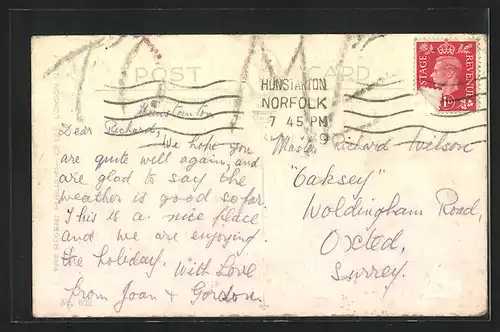 POST CARD
HUNSTANTON
NORFOLK
7 45 PM
POSTAGE REVENUE
1D
Hunstanton
Dear
Richard,
We hope you
are quite well again, and
are glad to say the
weather is good so far.
This is a nice place
and we are enjoying
the holiday. With Love
from Joan & Gordon.
Master Richard Wilson
"Oaksey"
Woldingham Road,
Oxted,
Surrey.